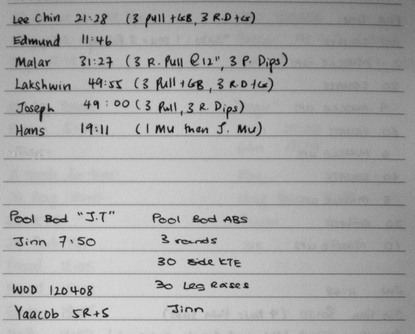 Lee Chin 21:28 (3 pull + GB, 3 R.D + GB)
Edmund 11:46
Malar 31:27 (3 R. Pull @ 12", 3 P. Dips)
Lakshwin 49:55 (3 Pull + GB, 3 R.D + GB)
Joseph 49:00 (3 Pull, 3 R. Dips)
Hans 19:11 (1 MU then J. MU)
Pool Bod "J.T" Pool Bod ABS
Jinn 7:50 3 rounds
30 side KTE
WOD 120408 30 Leg Rases
Yaacob 5R+5 Jinn